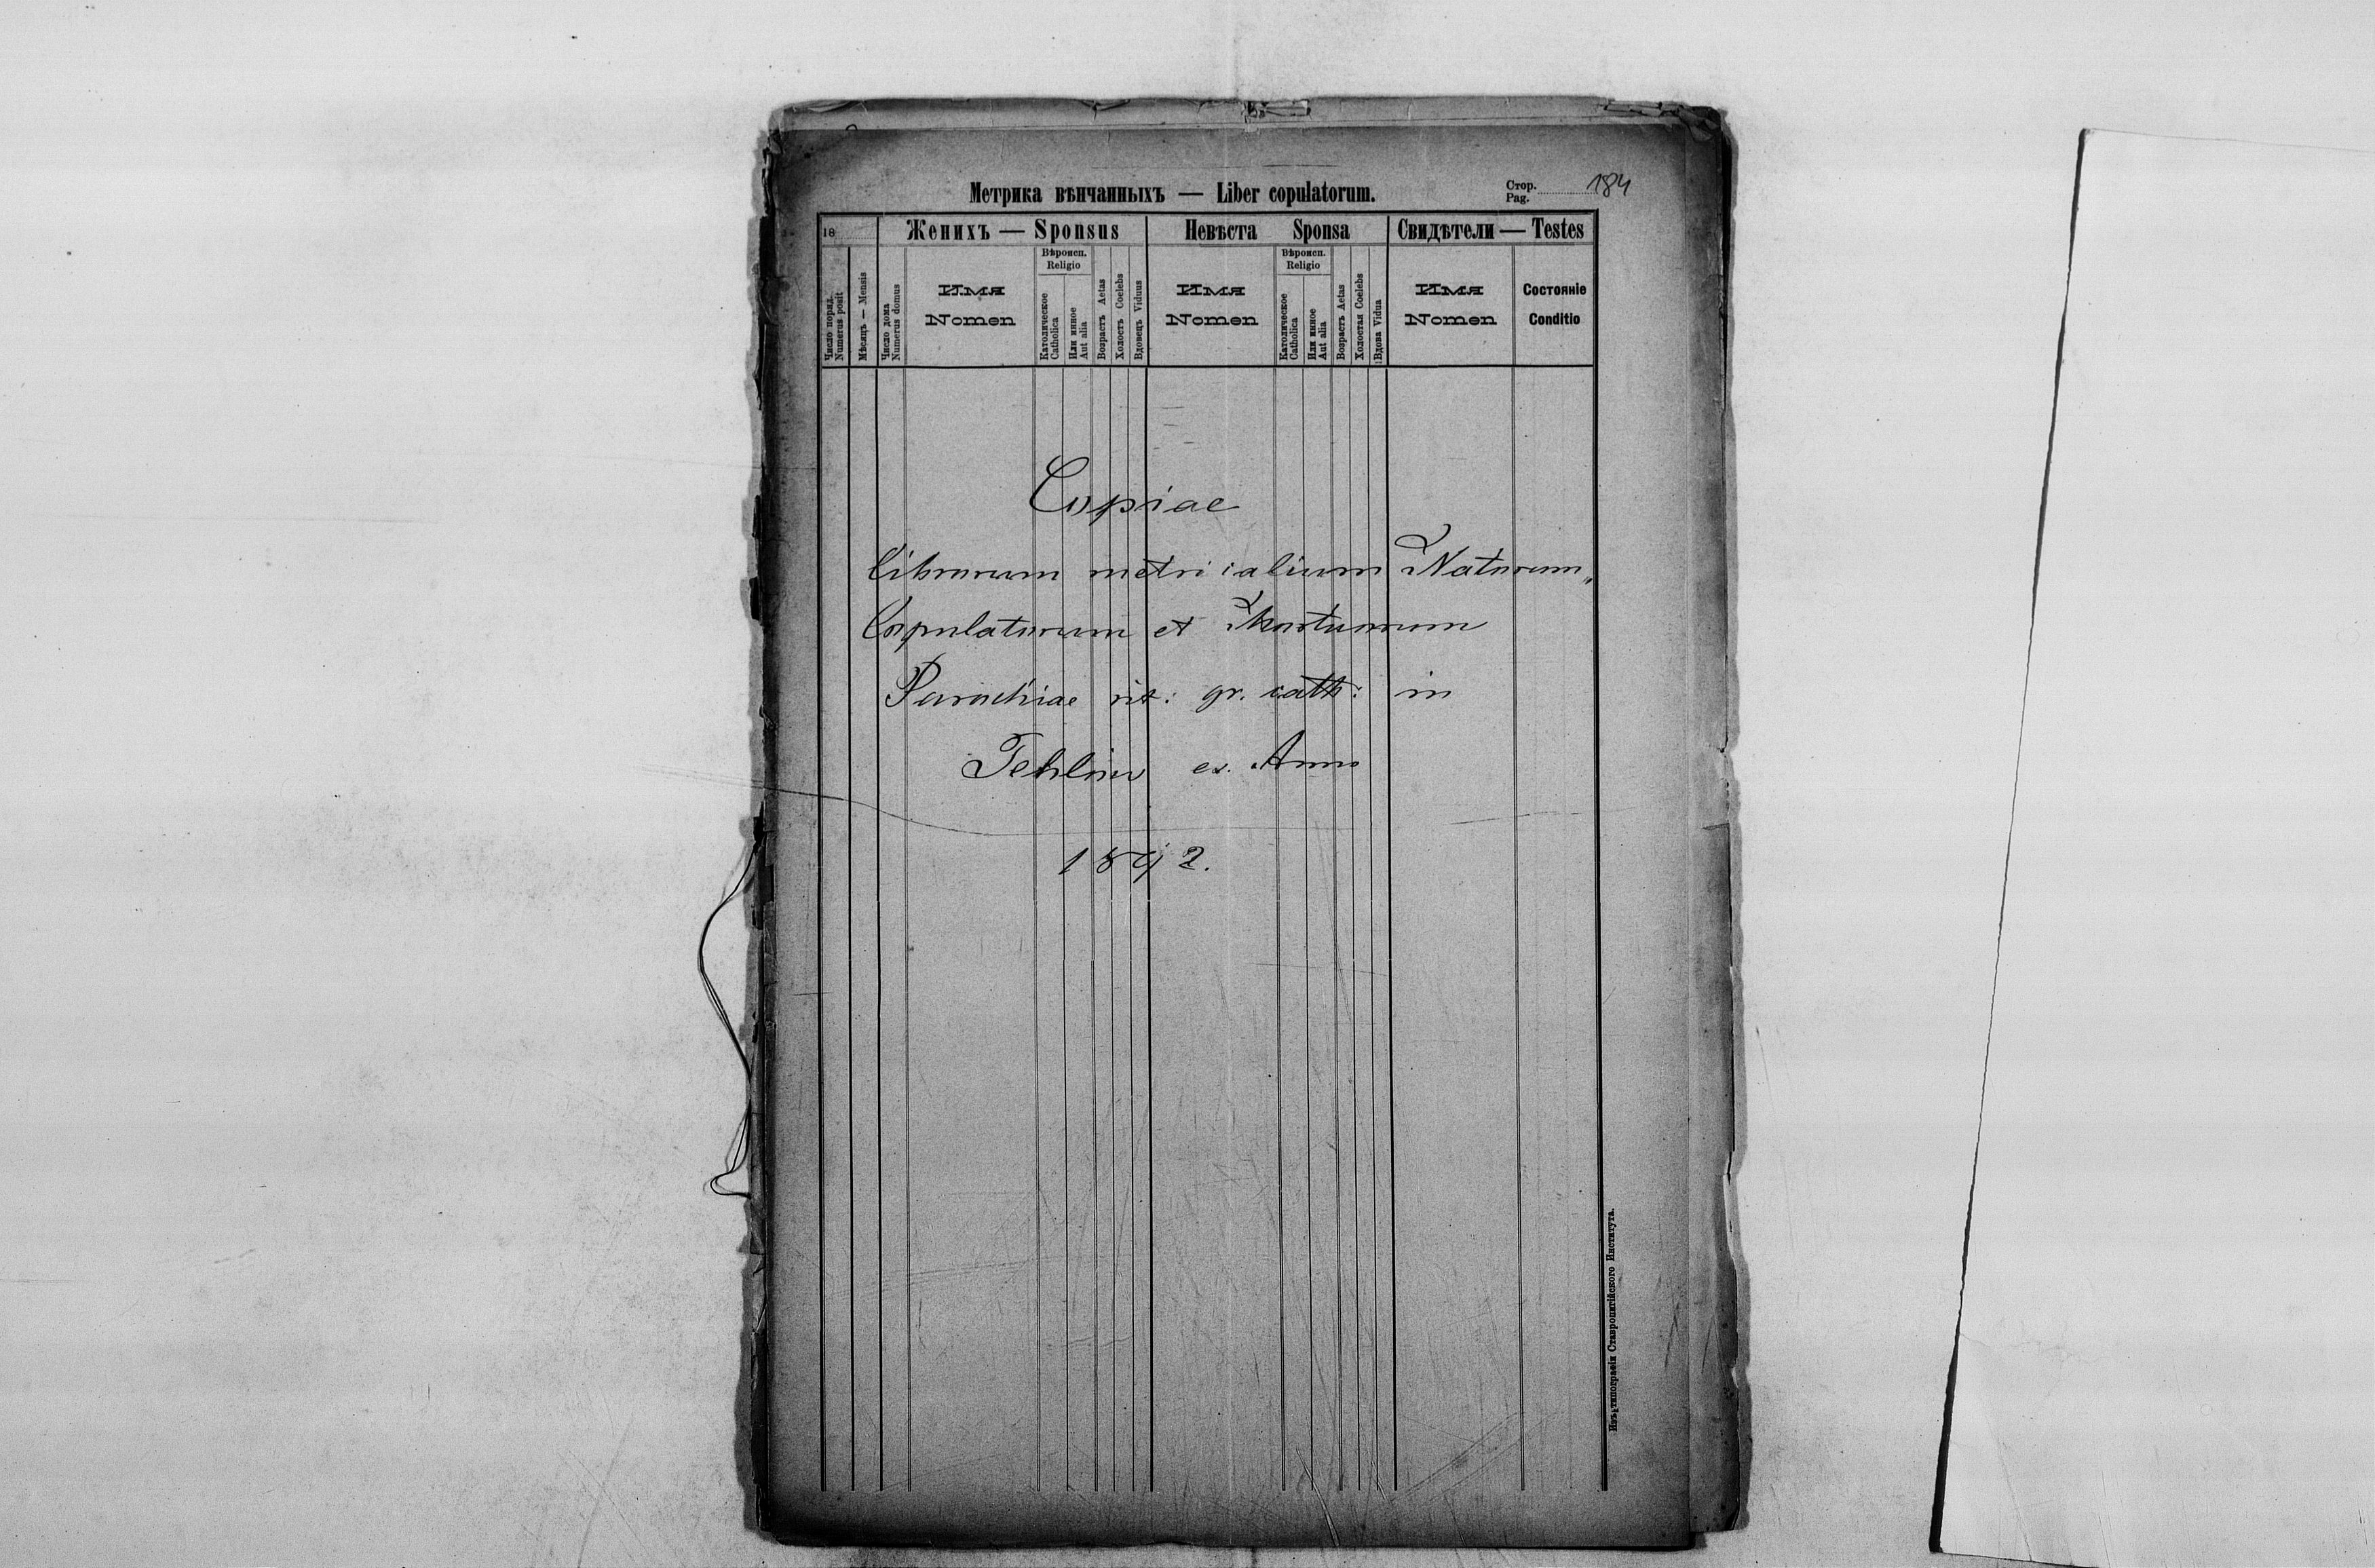 Метрика вѣнчанныхъ — Liber copulatorum.
Стор.
Pag.
184
18
Женихъ — Sponsus
Невѣста Sponsa
Свидѣтели — Testes
Число поряд.
Numerus posit
Мѣсяцъ — Mensis
Число дома
Numerus domus
Имя
Nomen
Вѣроисп.
Religio
Католическое
Catholica
Или инное
Aut alia
Возрастъ Aetas
Холостъ Coelebs
Вдовецъ Viduus
Имя
Nomen
Вѣроисп.
Religio
Католическое
Catholica
Или инное
Aut alia
Возрастъ Aetas
Холостая Coelebs
Вдова Vidua
Имя
Nomen
Состояніе
Conditio
Copiae
librorum metricalium Natorum,
Copulatorum et Mortuorum
Parochiae rit: gr. cath: in
Tehlów ex. Anno
1842.
Изъ типографіи Ставропигійского Института.